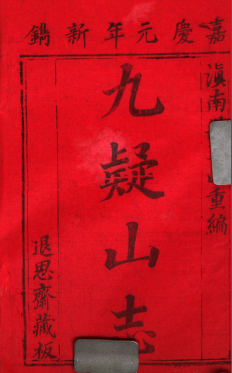 嘉慶元年新鐫
滇南重編
九疑山志
退思齋藏板